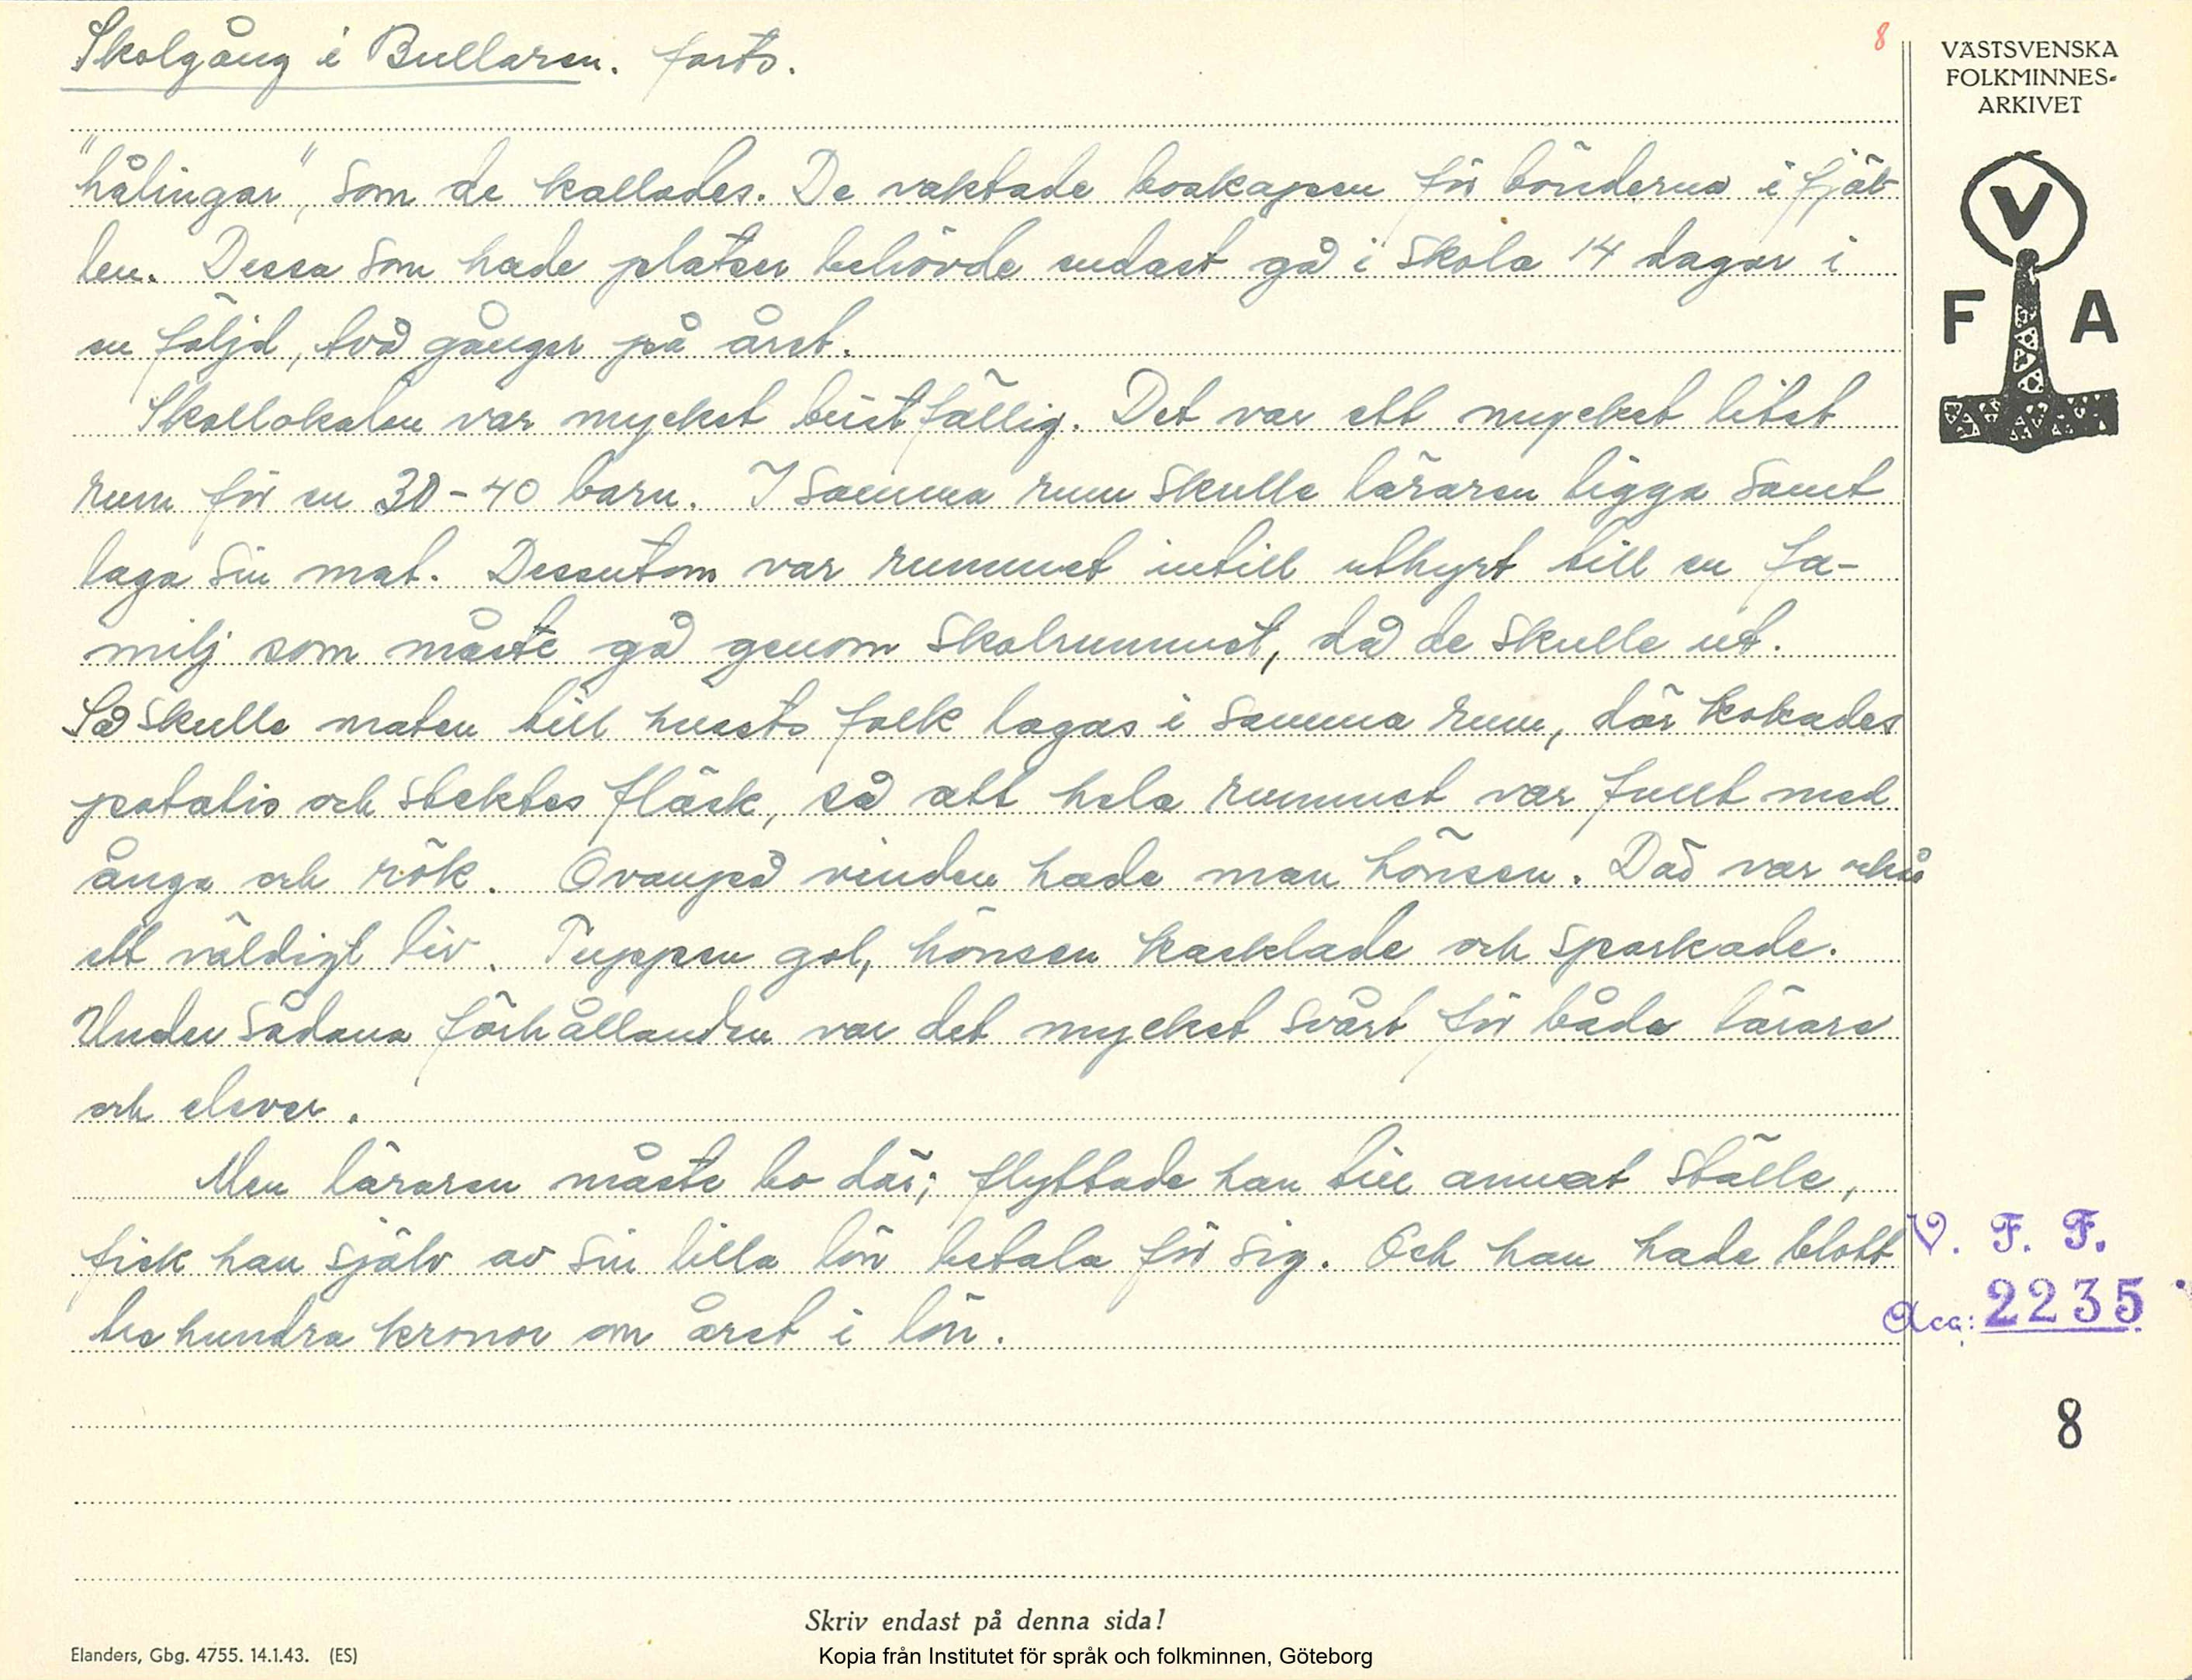 Skolgång i Bullaren. forts.
8
VÄSTSVENSKA
FOLKMINNES-
ARKIVET
V
F A
"hålingar", som de kallades. De vaktade boskapen för bönderna i fjäl-
len. Dessa som hade platser behövde endast gå i skola 14 dagar i
en följd, två gånger på året.
Skollokalen var mycket bristfällig. Det var ett mycket litet
rum för en 30-40 barn. I samma rum skulle läraren ligga samt
laga sin mat. Dessutom var rummet intill uthyrt till en fa-
milj som måste gå genom skolrummet, då de skulle ut.
Så skulle maten till husets folk lagas i samma rum, där kokades
potatis och stektes fläsk, så att hela rummet var fullt med
ånga och rök. Ovanpå vinden hade man hönsen. Där var också
ett väldigt liv. Tuppen gol, hönsen kacklade och sparkade.
Under sådana förhållanden var det mycket svårt för både lärare
och elever.
Men läraren måste bo där; flyttade han till annat ställe,
fick han själv av sin lilla lön betala för sig. Och han hade blott
tre hundra kronor om året i lön.
V. F. F.
Acc: 2235
8
Skriv endast på denna sida!
Elanders, Gbg. 4755. 14.1.43. (ES)
Kopia från Institutet för språk och folkminnen, Göteborg